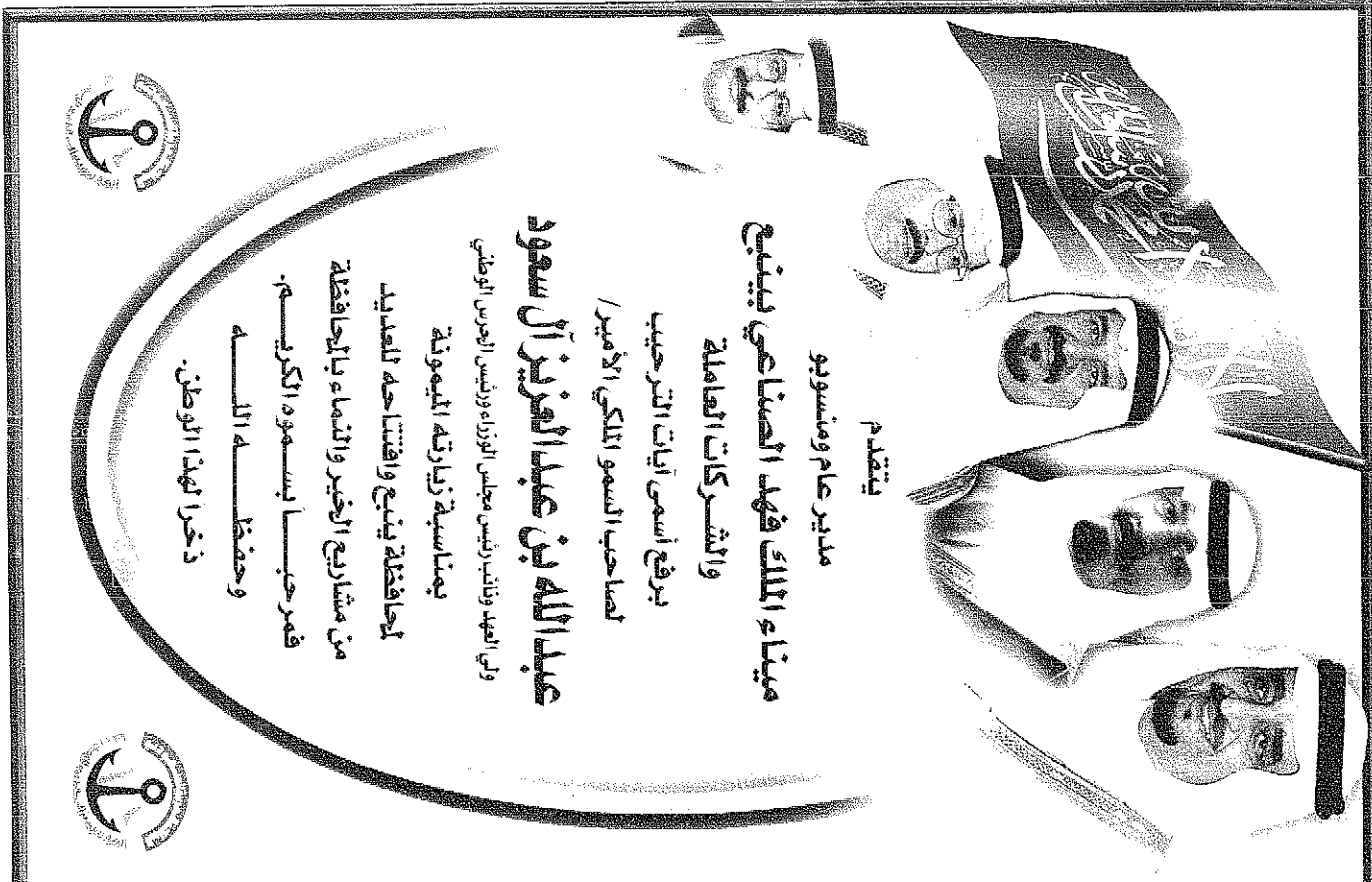 يتقدم
مدير عام ومنسوبو
ميناء الملك فهد الصناعي بينبع
والشركات العاملة
برفع أسمى آيات الترحيب
لصاحب السمو الملكي الأمير/
عبدالله بن عبدالعزيز آل سعود
ولي العهد ونائب رئيس مجلس الوزراء ورئيس الحرس الوطني
بمناسبة زيارته الميمونة
لمحافظة ينبع وافتتاحه للعديد
من مشاريع الخير والنماء بالمحافظة
فمرحبـــا بســموه الكريـــم.
وحفظـــــه اللـــــه
ذخرا لهذا الوطن.